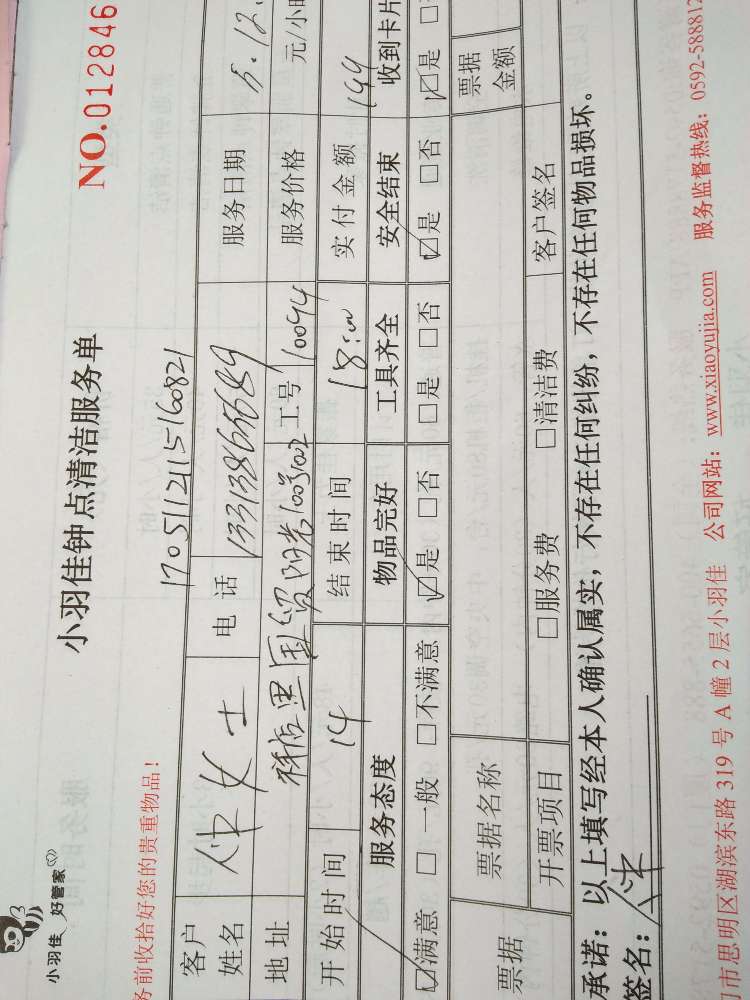 小羽佳 好管家
小羽佳钟点清洁服务单
NO.012846
务前收拾好您的贵重物品！
1705112115160821
客户姓名 女士 电话 13313865689 服务日期 5.12.
地址 国贸阳光 工号 10094 服务价格 元/小时
开始时间 14 结束时间 18:00 实付金额 144
服务态度 物品完好 工具齐全 安全结束 收到卡片
☑满意 □一般 □不满意 ☑是 □否 □是 □否 ☑是 □否 ☑是 □
票据 票据名称 票据金额
开票项目 □服务费 □清洁费 客户签名
承诺：以上填写经本人确认属实，不存在任何纠纷，不存在任何物品损坏。
签名：
门市思明区湖滨东路 319 号 A 幢 2 层小羽佳 公司网站：www.xiaoyujia.com 服务监督热线：0592-588812